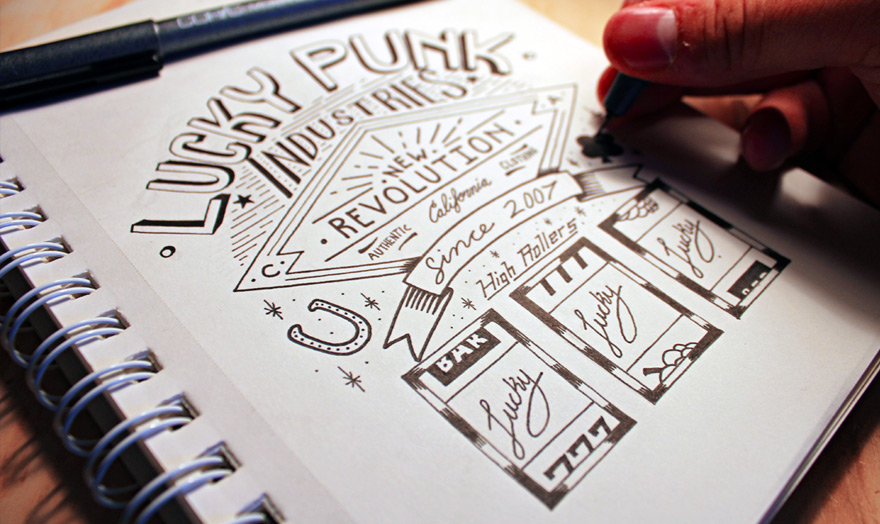 LUCKY PUNK
INDUSTRIES
NEW
REVOLUTION
AUTHENTIC California CLOTHING
C. A.
Since 2007
High Rollers
BAR
Lucky
777
777
Lucky
Lucky